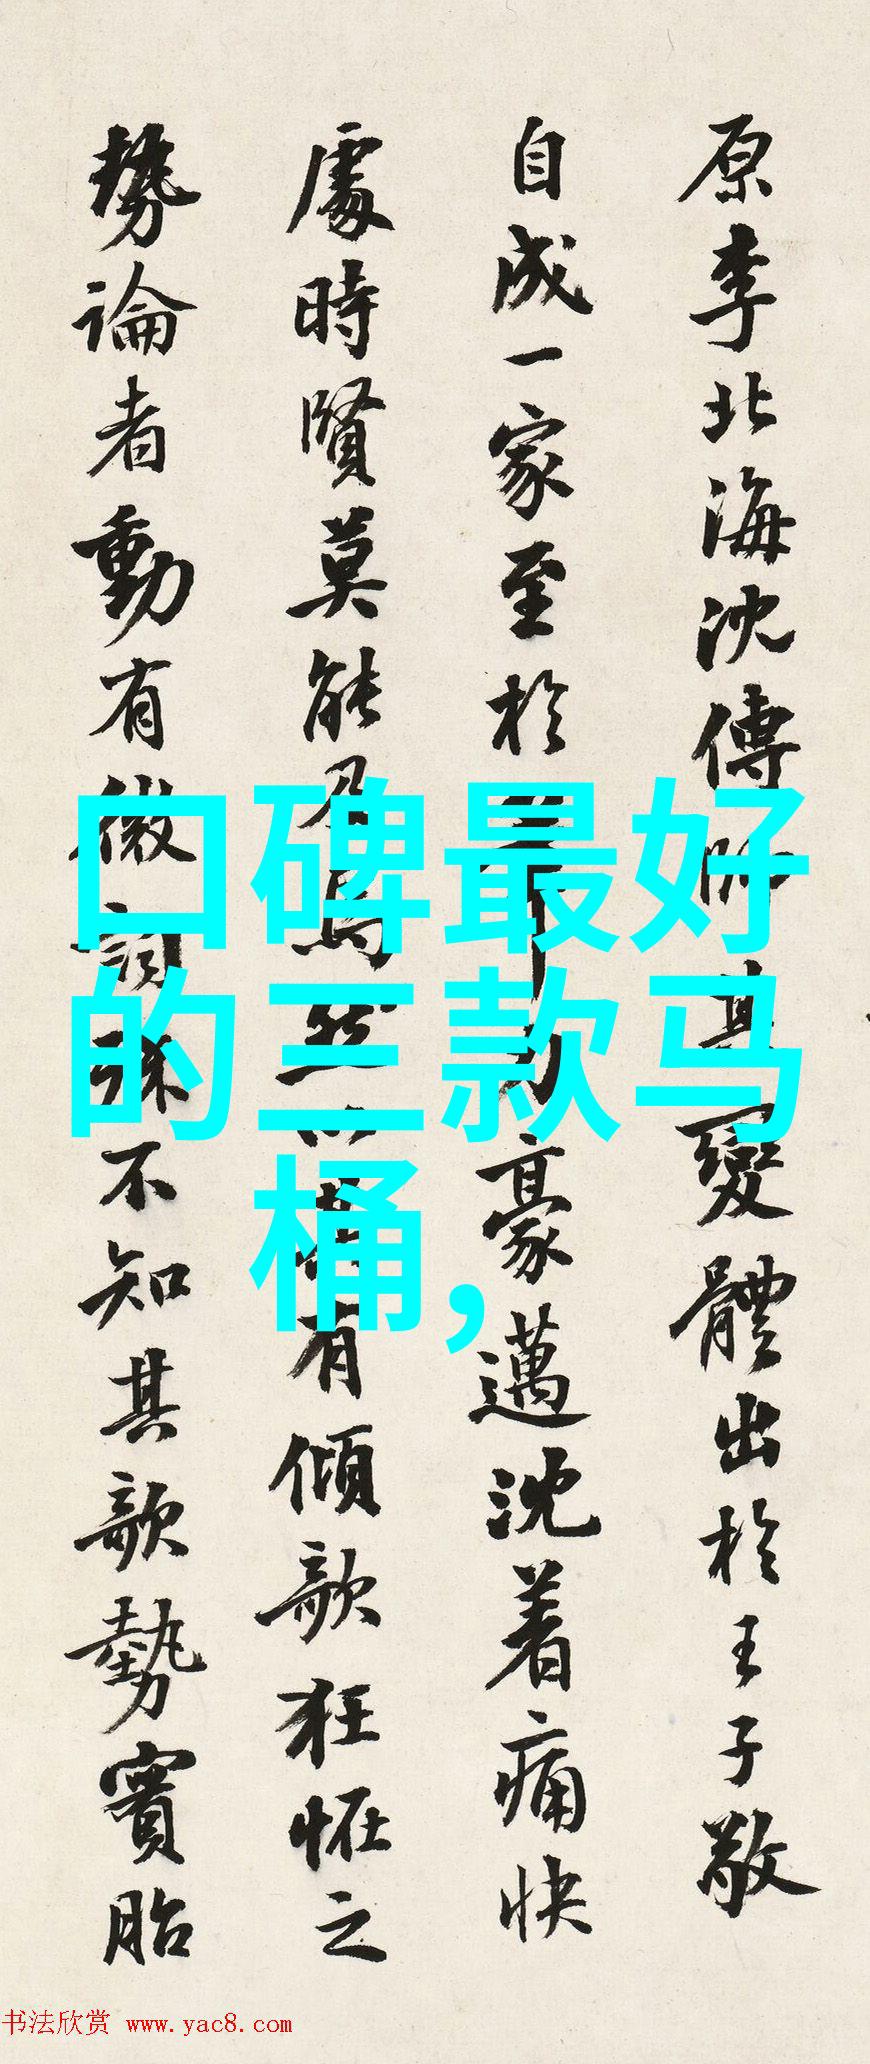 原李北海沈傳師其變體出於王子敬
自成一家至於豪邁沈着痛快
處時賢莫能及焉然以有傾歌狂怪之
勢論者動有微詞殊不知其歌勢實胎
口碑最好
的三款马
桶,
书法欣赏 www.yac8.com